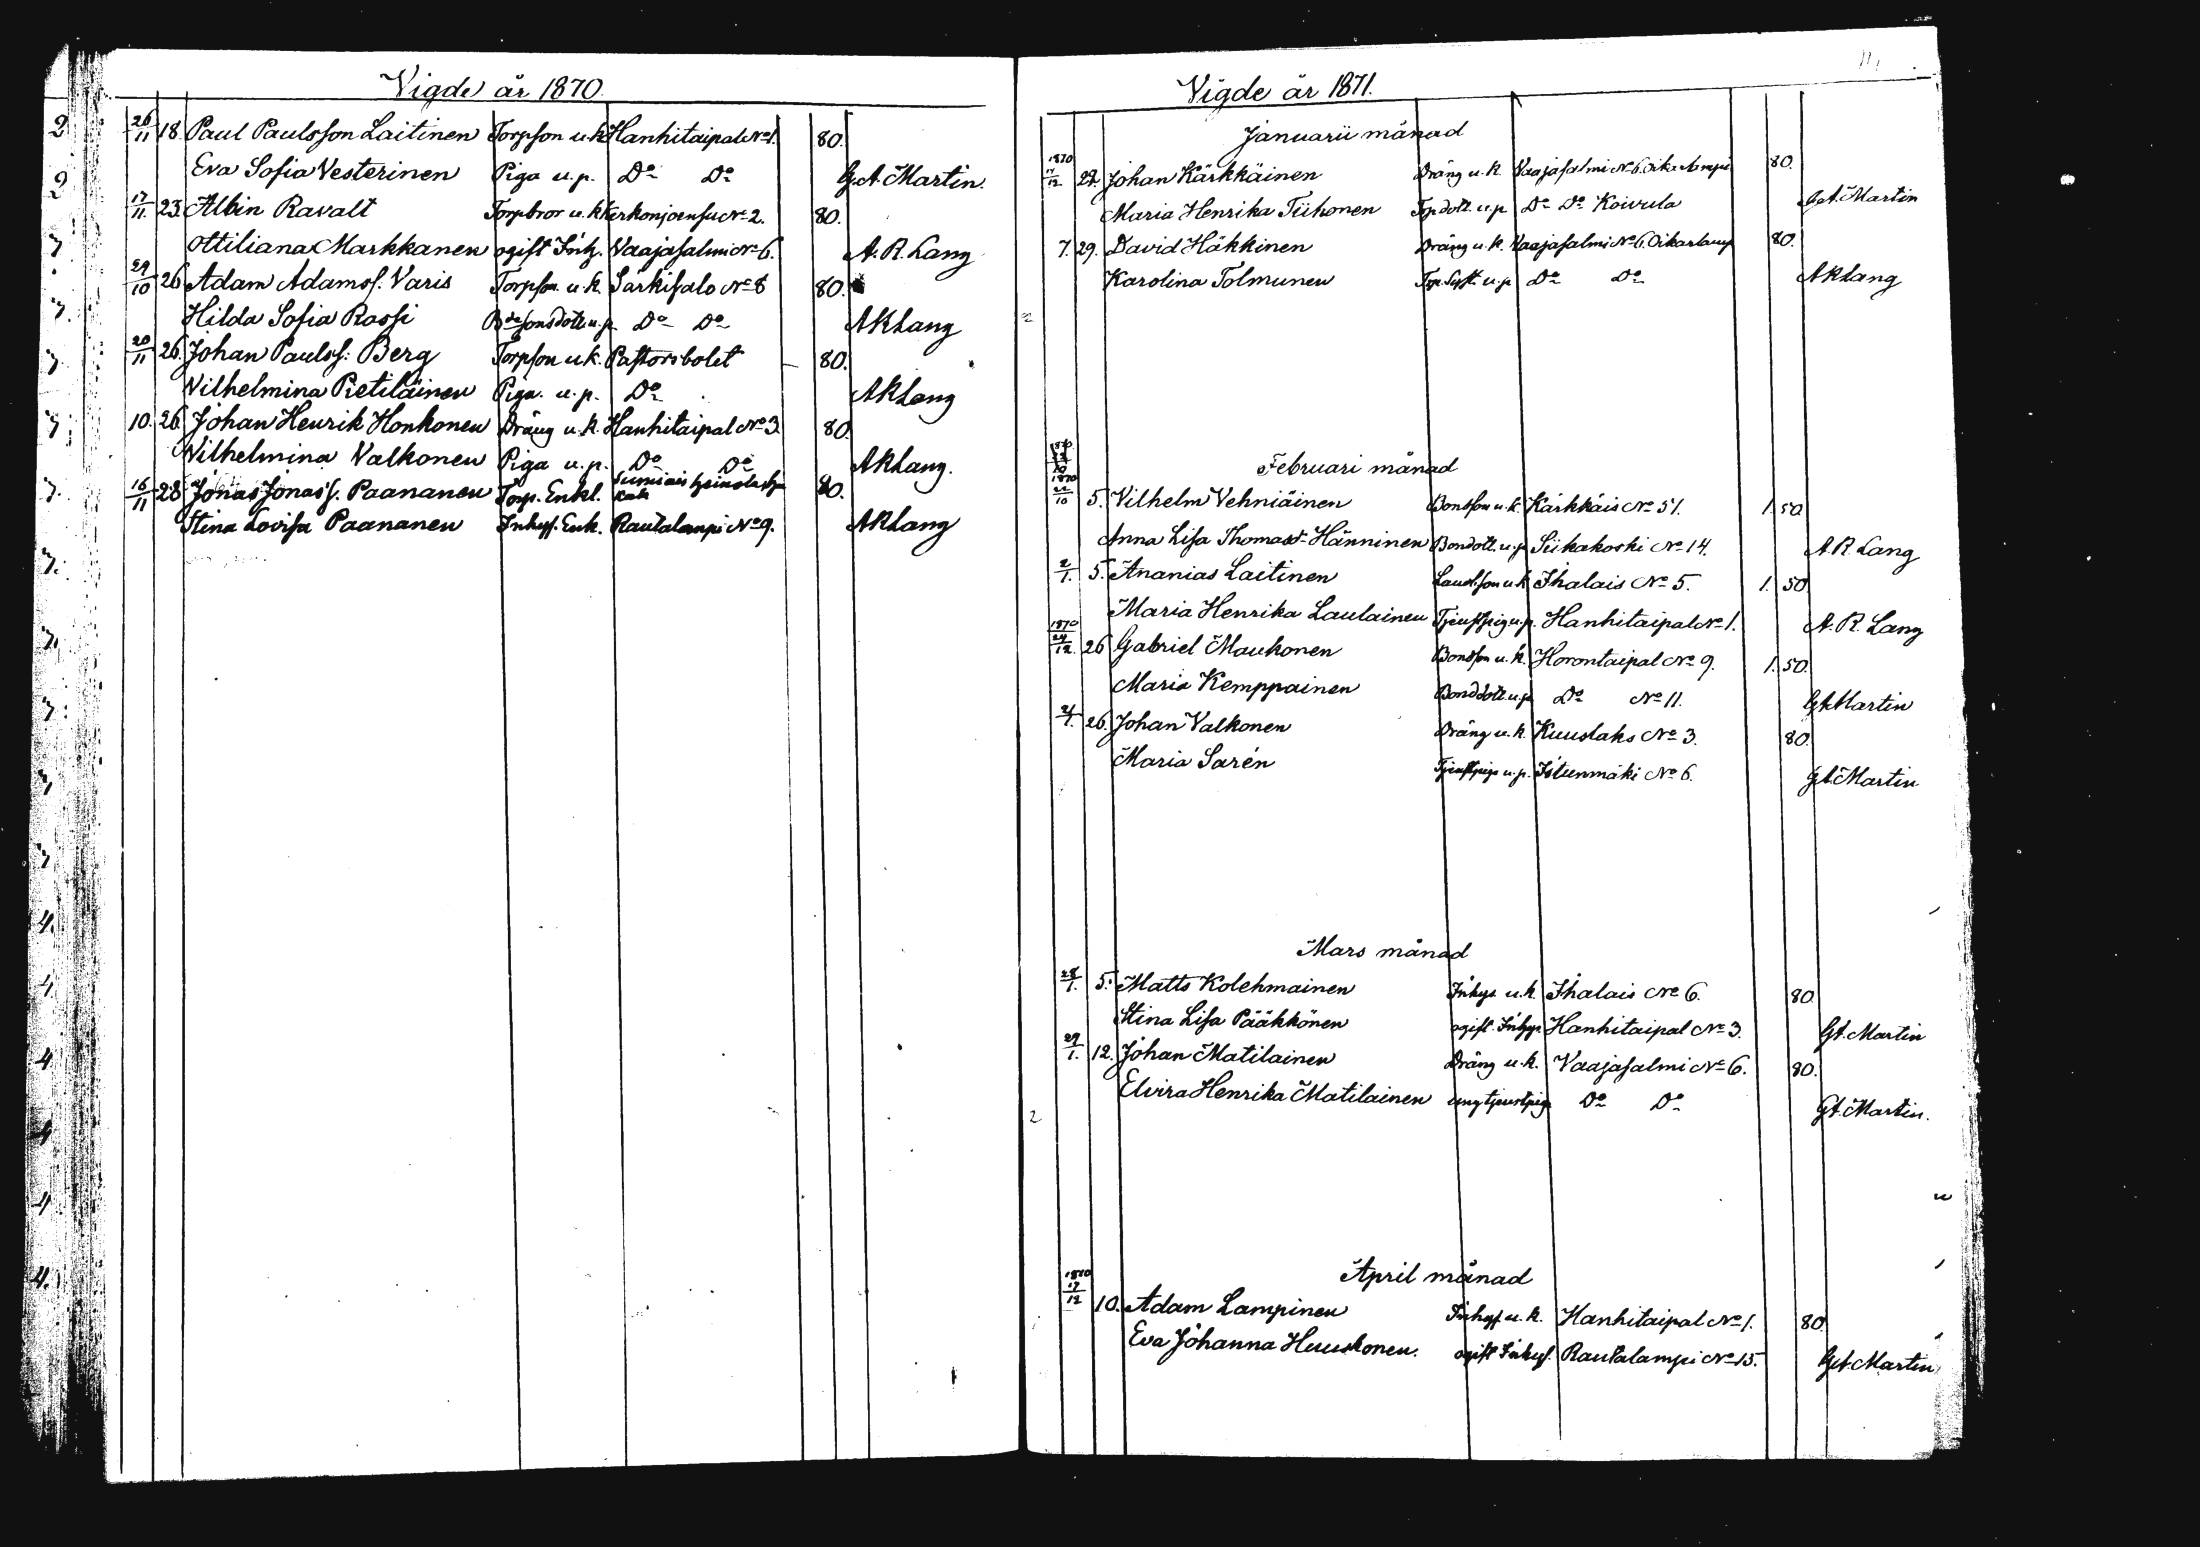 Vigde år 1870.
26/11 18 Paul Paulsson Laitinen Torpson u.k. Hanhitaipal No 1. 80.
Eva Sofia Vesterinen Piga u.p. Do Do G.A. Martin.
17/11 23. Albin Ravalt Torpbror u.k. Kerkonjoensu No 2. 80.
Ottiliana Markkanen ogift Inh. Vaajasalmi No 6. A. R. Lang
29/10 26 Adam Adamss. Varis Torpson u.k. Särkisalo No 8 80.
Hilda Sofia Rossi Bdesonsdott. u.p. Do Do A R Lang
20/11 26. Johan Paulss: Berg Torpson u.k. Pastorsbolet 80.
Vilhelmina Pietiläinen Piga. u.p. Do A R Lang
10. 26. Johan Henrik Honkonen Dräng u.k. Hanhitaipal No 3. 80.
Vilhelmina Valkonen Piga u.p. Do Do A R Lang.
16/11 28. Jonas Jonass. Paananen Torp. Enkl. Sumiais 80.
Stina Lovisa Paananen Inhys. Enk. Rautalampi No 9. A R Lang
Vigde år 1871.
Januarii månad
1870 17/12 22. Johan Kärkkäinen Dräng u.k. Vaajasalmi No 6. Oikarlampi 80.
Maria Henrika Tiihonen Tpdott. u.p Do Do Koivula G.A. Martin
7. 29. David Häkkinen Dräng u.k. Vaajasalmi No 6. Oikarlamp 80.
Karolina Tolmunen Tp. Syst. u.p Do Do A R Lang
Februari månad
1870 22/10 5. Vilhelm Vehniäinen Bondson u.k. Kärkkäis No 51. 1. 50
Anna Lisa Thomasd. Hänninen Bondott. u.p. Siikakoski No 14. A. R. Lang
2/1. 5. Ananias Laitinen Landb.son u.k Ihalais No 5. 1. 50.
Maria Henrika Laulainen Tjenstpig u.p. Hanhitaipal No 1. A. R. Lang
1870 24/12. 26 Gabriel Maukonen Bondson u.k. Horontaipal No 9. 1. 50.
Maria Kemppainen Bonddott. u.p Do No 11. G A Martin
2/1. 26. Johan Valkonen Dräng u.k. Kuuslaks No 3. 80.
Maria Sarén Tjenstpiga u.p. Istunmäki No 6. G A. Martin
Mars månad
28/1. 5. Matts Kolehmainen Inhys u.k. Ihalais No 6. 80.
Stina Lisa Pääkkönen ogift Inhys Hanhitaipal No 3. G A. Martin
29/1. 12. Johan Matilainen Dräng u.k. Vaajasalmi No 6. 80.
Elvira Henrika Matilainen ung tjenstpiga Do Do G A. Martin.
April månad
1870 17/12 10. Adam Lampinen Inhys u.k. Hanhitaipal No 1. 80.
Eva Johanna Huuskonen. ogift Inhys. Rautalampi No 15. G A. Martin